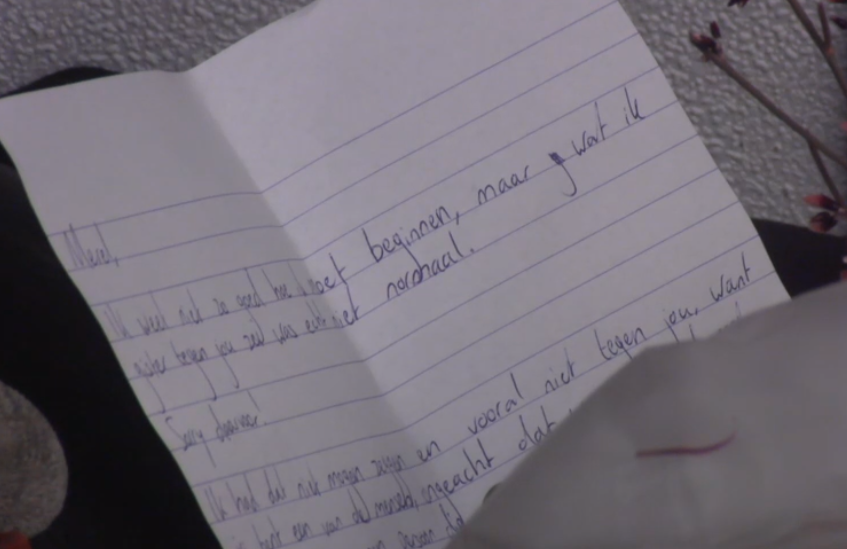 Merel,
Ik weet niet zo goed hoe ik moet beginnen, maar wat ik
gister tegen jou zei was echt niet normaal.
Sorry daarvoor!
Ik had dat niet mogen zeggen en vooral niet tegen jou, want
je bent een van de mensen, ongeacht dat